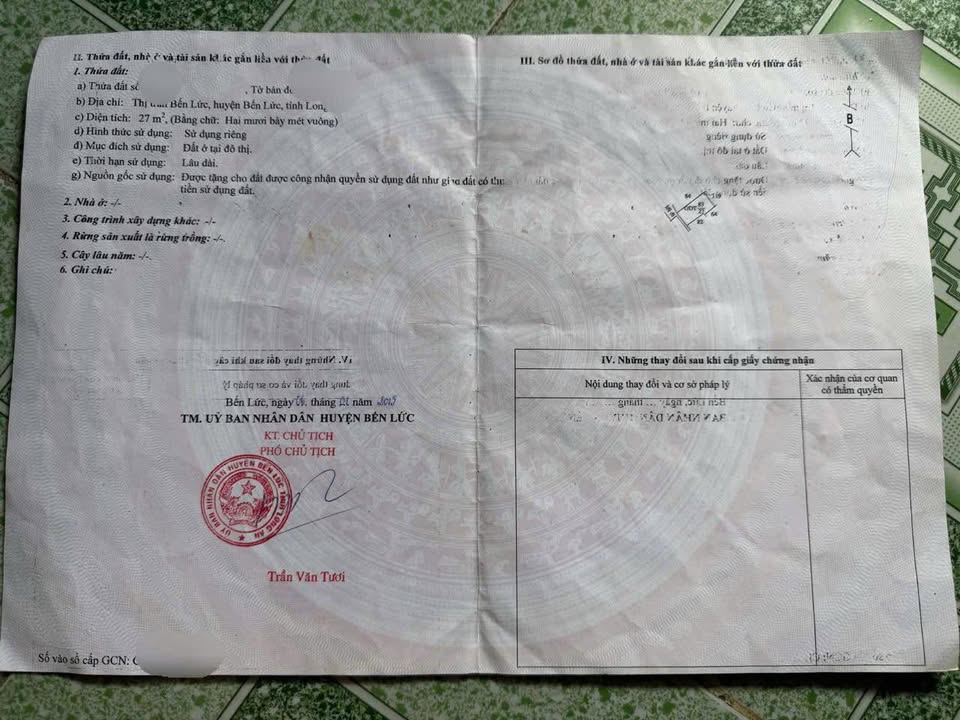 II. Thửa đất, nhà ở và tài sản khác gắn liền với thửa đất
1. Thửa đất:
a) Thửa đất số
, Tờ bản đồ
b) Địa chỉ: Thị trấn Bến Lức, huyện Bến Lức, tỉnh Long
c) Diện tích: 27 m², (Bằng chữ: Hai mươi bảy mét vuông)
d) Hình thức sử dụng: Sử dụng riêng
đ) Mục đích sử dụng: Đất ở tại đô thị.
e) Thời hạn sử dụng: Lâu dài.
g) Nguồn gốc sử dụng: Được tặng cho đất được công nhận quyền sử dụng đất như giao đất có thu
tiền sử dụng đất.
2. Nhà ở: -/-
3. Công trình xây dựng khác: -/-
4. Rừng sản xuất là rừng trồng: -/-.
5. Cây lâu năm: -/-.
6. Ghi chú:
Bến Lức, ngày tháng năm
TM. UỶ BAN NHÂN DÂN HUYỆN BẾN LỨC
KT. CHỦ TỊCH
PHÓ CHỦ TỊCH
UỶ BAN NHÂN DÂN HUYỆN BẾN LỨC TỈNH LONG AN
Trần Văn Tươi
Số vào sổ cấp GCN: C
III. Sơ đồ thửa đất, nhà ở và tài sản khác gắn liền với thửa đất
B
IV. Những thay đổi sau khi cấp giấy chứng nhận
Nội dung thay đổi và cơ sở pháp lý
Xác nhận của cơ quan
có thẩm quyền